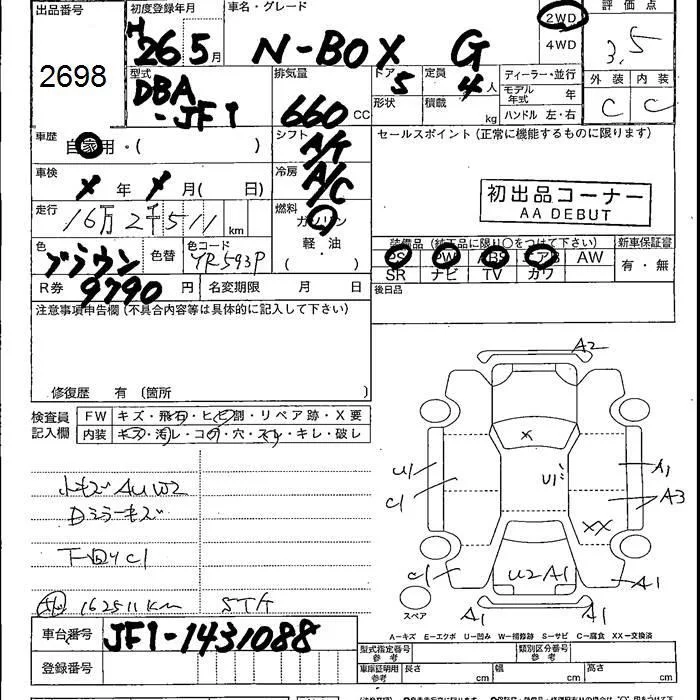 出品番号
2698
初度登録年月
H 26 5月
車名・グレード
N-BOX G
2WD
4WD
評価点
3.5
外装 内装
C C
型式
DBA
-JF1
排気量
660 CC
ドア 5
形状
定員 4人
積載 kg
ディーラー・並行
モデル年式 年
ハンドル 左・右
車歴
自家用・( )
シフト
A/T
セールスポイント(正常に機能するものに限ります)
車検
X 年 X 月( 日)
冷房
A/C
初出品コーナー
AA DEBUT
走行
16万2千511 km
燃料
ガソリン
軽・油
( )
色
ブラウン
色替
色コード
YR593P
装備品(純正品に限り〇をつけて下さい)
PS PW ABS エアB AW
SR ナビ TV カワ
新車保証書
有・無
R券 9790 円
名変期限 月 日
後日品
注意事項申告欄(不具合内容等は具体的に記入して下さい)
修復歴 有 (箇所 )
検査員
記入欄
FW キズ・飛石・ヒビ割・リペア跡・X要
内装 キズ・汚レ・コゲ・穴・スレ・キレ・破レ
小キズ AU W2
Dミラーキズ
下回りC1
162511km STK
A2
X
U1
U1
C1
A1
A3
XX
C1
U2 A1
A1
A1
A1
スペア
A-キズ E-エクボ U-凹み W-補修跡 S-サビ C-腐食 XX-交換済
車台番号
JF1-1431088
登録番号
型式指定番号
参考
類別区分番号
参考
車庫証明用
参考
長さ cm
幅 cm
高さ cm